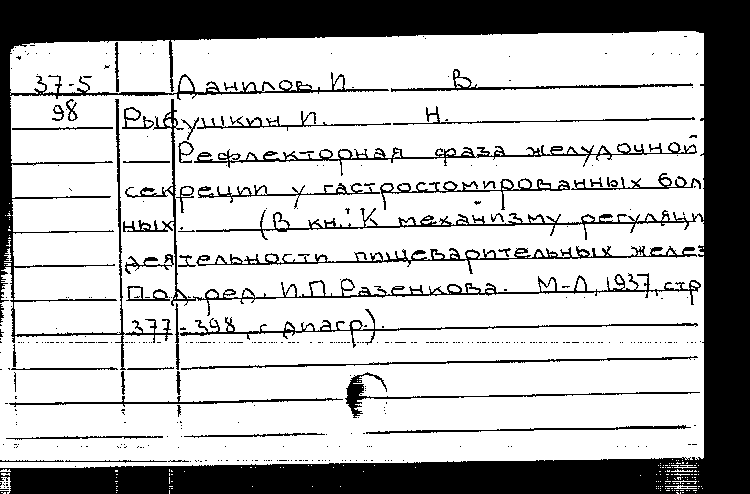 37-5 Данилов, И. В.
98 Рыбушкин, И. Н.
Рефлекторная фаза желудочной
секреции у гастростомированных бол
ных. (В кн.: К механизму регуляци
деятельности пищеварительных желез
Под ред. И.П. Разенкова. М-Л, 1937, стр
377-398, с диагр.).